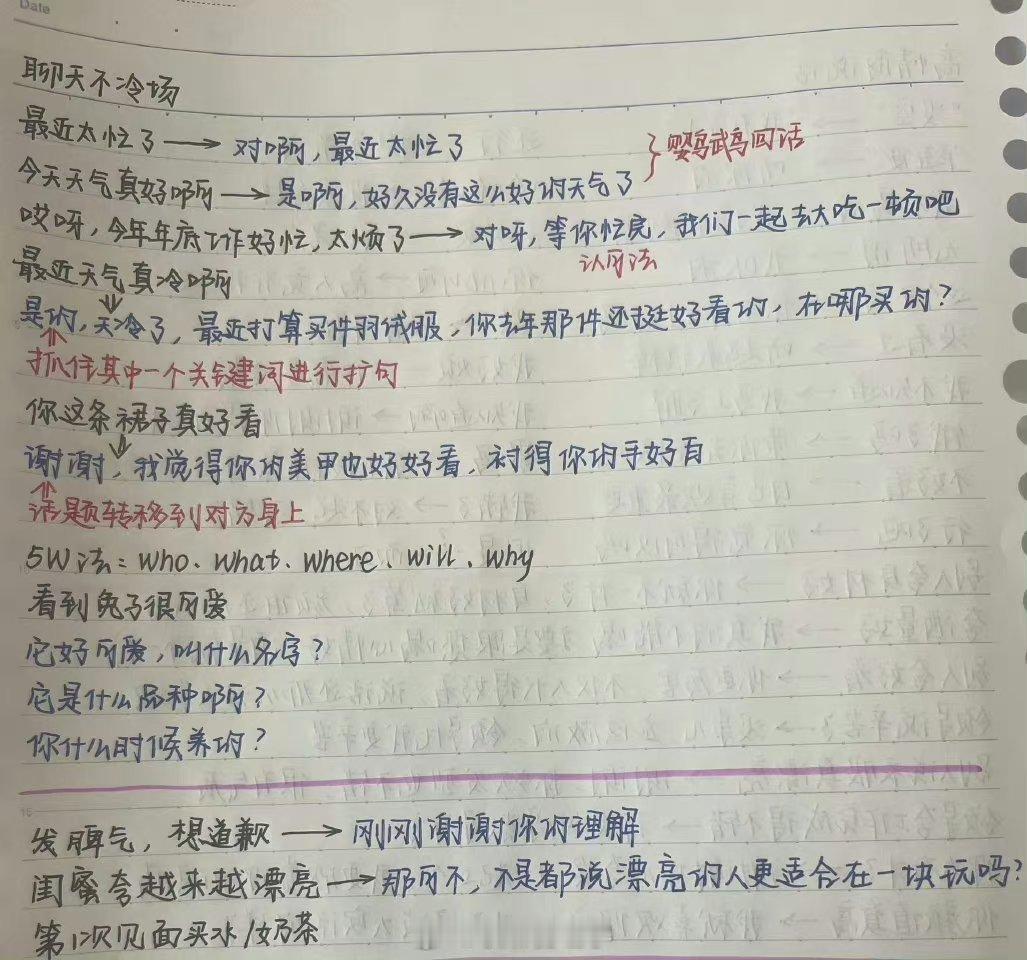 Date
聊天不冷场
最近太忙了 → 对啊,最近太忙了
} 鹦鹉回话
今天天气真好啊 → 是啊,好久没有这么好的天气了
哎呀,今年年底工作好忙,太烦了 → 对呀,等你忙完,我们一起去大吃一顿吧
认可法
最近天气真冷啊
是的,天冷了,最近打算买件羽绒服,你去年那件还挺好看的,在哪买的?
抓住其中一个关键词进行扩句
你这条裙子真好看
谢谢,我觉得你的美甲也好好看,衬得你的手好白
话题转移到对方身上
5W法:who、what、where、will、why
看到兔子很可爱
它好可爱,叫什么名字?
它是什么品种啊?
你什么时候养的?
发脾气,想道歉 → 刚刚谢谢你的理解
闺蜜夸越来越漂亮 → 那可不,不是都说漂亮的人更适合在一块玩吗?
第1次见面买水/奶茶